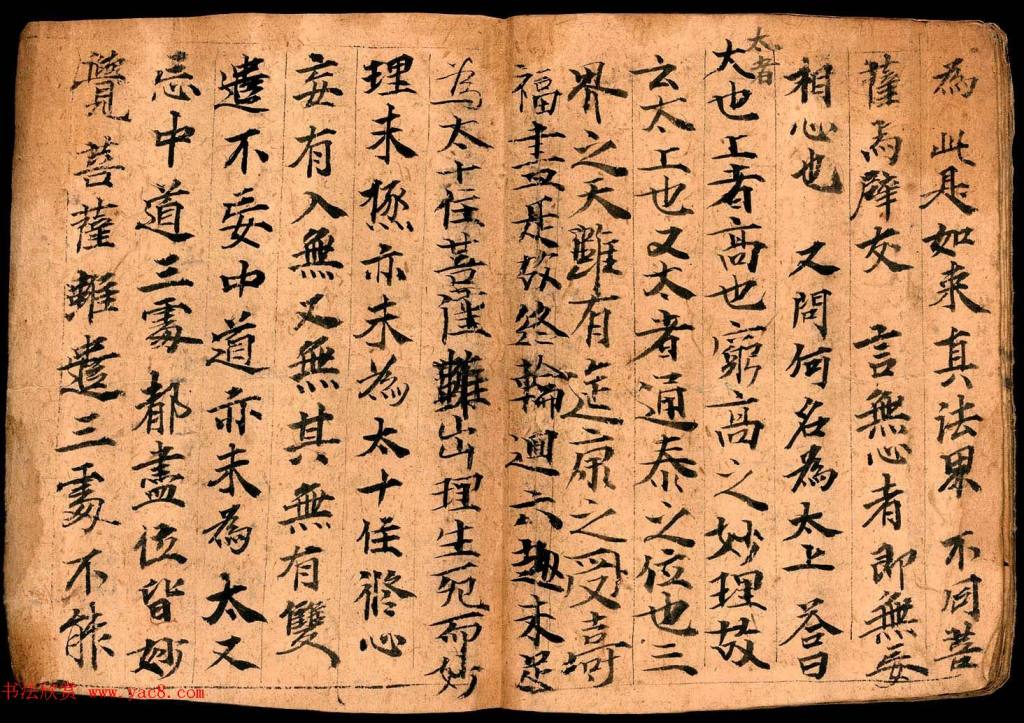 為此是如来真法界不同菩
薩為辟支 言無心者即無妄
相心也 又問何名為太上荅曰
太者
大也上者高也窮高之妙理故
云太上也又太者通泰之位也三
界之天雖有延康之受
福盡是故終輪迴六趣未足
為太十住菩薩雖出理生死而妙
理未極亦未為太十住俢心
妄有入無又無其無有雙
遣不妄中道亦未為太又
忘中道三處都盡位皆妙
覺菩薩雖遣三處不能
书法欣赏 www.yac8.com